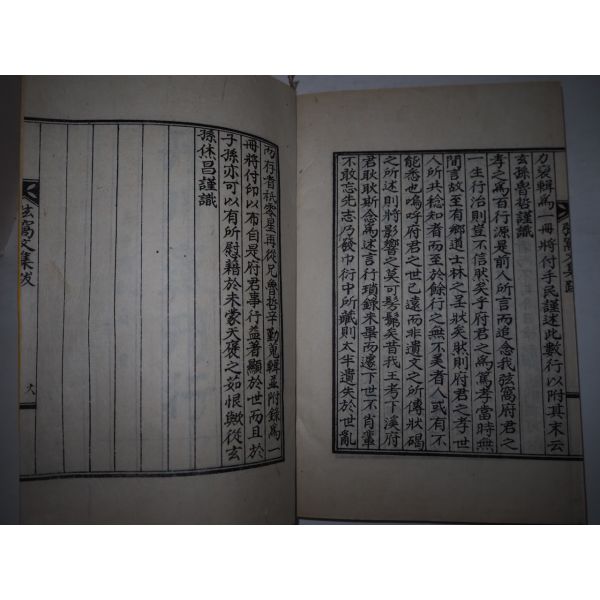 力裒輯爲一冊將付手民謹述此數行以附其末云
玄孫魯哲謹識
孝之爲百行源是前人所言而追念我弦窩府君之
一生行治則豈不信狀矣乎府君之爲篤孝當時無
間言故至有鄉道士林之呈狀矣然則府君之孝世
人所共稔知者而至於餘行之無不美者人或有不
能悉也嗚呼府君之世已遠而非遺文之所傳狀碣
之所述則將影響之莫可髣髴矣昔我王考下溪府
君耿耿斯念爲述言行瑣錄未畢而遽下世不肖輩
不敢忘先志乃發巾衍中所藏則太半遺失於世亂
而存者祇零星再從兄魯哲辛勤蒐輯並附錄爲一
冊將付印以布自是府君事行益著顯於世而且於
子孫亦可以有所慰藉於未蒙天褒之茹恨歟從玄
孫烋昌謹識
弦窩文集跋